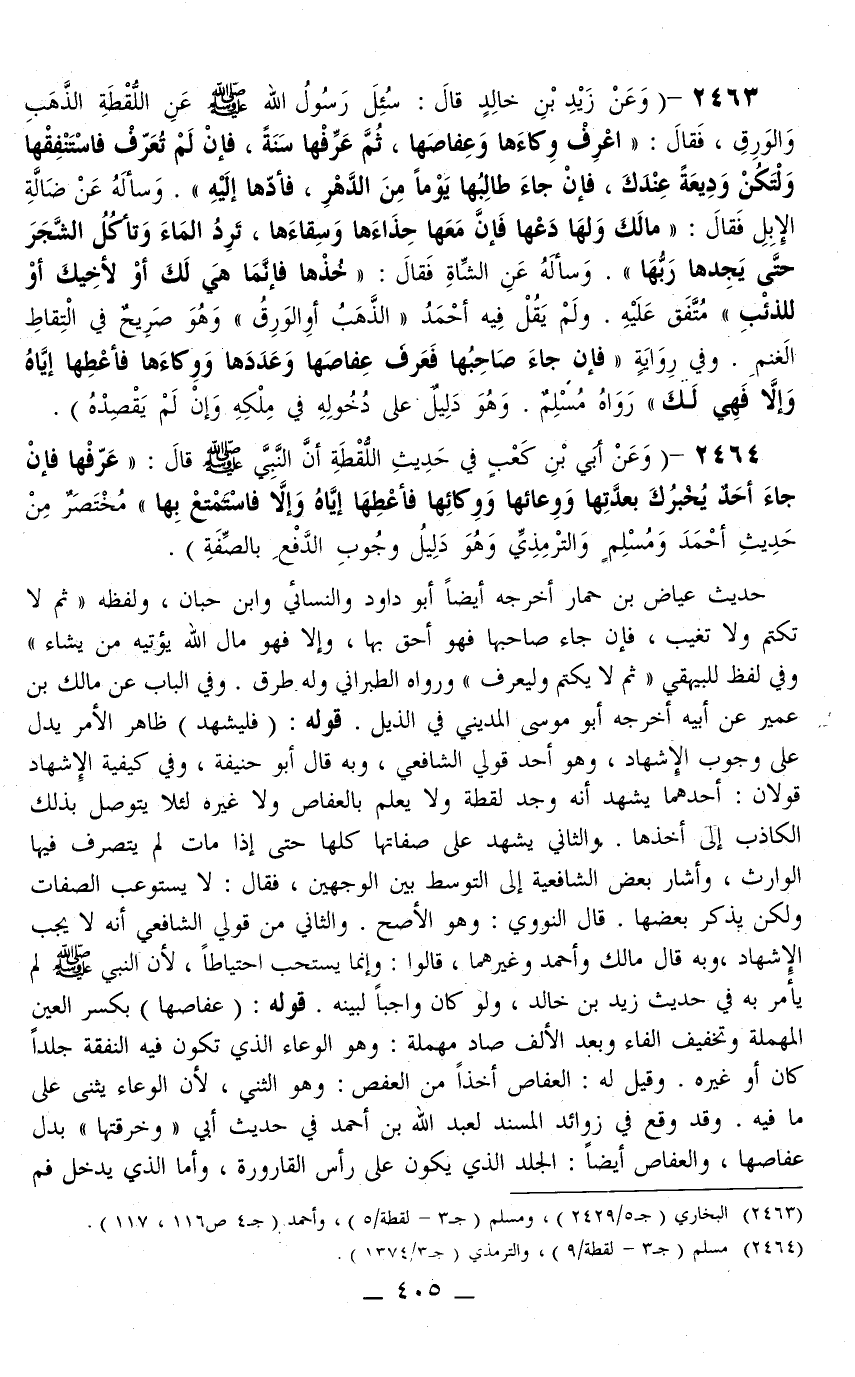 ٢٤٦٣ -( وَعَنْ زَيْدِ بْنِ خالِدٍ قالَ : سُئِلَ رَسُولُ الله ﷺ عَنِ اللُّقْطَةِ الذَّهَبِ
وَالوَرِقِ ، فَقالَ : « اعْرِفْ وِكاءَها وَعِفاصَها ، ثُمَّ عَرِّفْها سَنَةً ، فإنْ لَمْ تُعَرّفْ فاسْتَنْفِقْها
وَلْتَكُنْ وَدِيعَةً عِنْدَكَ ، فإنْ جاءَ طالِبُها يَوْماً مِنَ الدَّهْرِ ، فأدّها إلَيْهِ » . وَسألَهُ عَنْ ضالَّةِ
الإِبِلِ فَقالَ : « مالَكَ وَلهَا دَعْها فإنَّ مَعَها حِذَاءَها وَسِقاءَها ، تَرِدُ الماءَ وَتأكُلُ الشَّجَرَ
حتَّى يَجِدها رَبُّهَا » . وَسألَهُ عَنِ الشَّاةِ فَقالَ : « خُذْها فإنَّمَا هيَ لَكَ أوْ لأخِيكَ أوْ
للذئْبِ » مُتَّفَق عَلَيْهِ . ولَمْ يَقُلْ فِيه أحْمَدُ « الذَّهَبُ أو الوَرِقُ » وَهُوَ صَرِيحٌ في الْتِقاطِ
الغَنمِ . وفي رِوَايَةٍ « فإن جاءَ صَاحِبُها فَعَرَفَ عِفاصَها وَعَدَدَها وَوِكاءَها فأعْطِها إيَّاهُ
وَإلَّا فَهِي لَكَ » رَوَاهُ مُسْلِمٌ . وَهُوَ دَلِيلٌ على دُخُولِهِ في مِلْكِهِ وَإنْ لَمْ يَقْصِدْهُ ) .
٢٤٦٤ -( وَعَنْ أبي بْنِ كَعْبٍ في حَدِيثِ اللُّقْطَةِ أنَّ النَّبِيَّ ﷺ قالَ : « عَرِّفْها فإنْ
جاءَ أحَدٌ يُخْبرُكَ بعدَّتِها وَوِعائها وَوِكائِها فأعْطِهَا إيَّاهُ وَإلَّا فاسْتَمْتعْ بِها » مُخْتَصَرٌ مِنْ
حَدِيثِ أحْمَدَ وَمُسْلِمٍ وَالترْمِذِيِّ وَهُوَ دَلِيلُ وجُوبِ الدَّفْعِ بالصِّفَةِ ) .
حديث عياض بن حمار أخرجه أيضاً أبو داود والنسائي وابن حبان ، ولفظه « ثم لا
تكتم ولا تغيب ، فإن جاء صاحبها فهو أحق بها ، وإلا فهو مال الله يؤتيه من يشاء »
وفي لفظ للبيهقي « ثم لا يكتم وليعرف » ورواه الطبراني وله طرق . وفي الباب عن مالك بن
عمير عن أبيه أخرجه أبو موسى المديني في الذيل . قوله : ( فليشهد ) ظاهر الأمر يدل
على وجوب الإشهاد ، وهو أحد قولي الشافعي ، وبه قال أبو حنيفة ، وفي كيفية الإشهاد
قولان : أحدهما يشهد أنه وجد لقطة ولا يعلم بالعفاص ولا غيره لئلا يتوصل بذلك
الكاذب إلى أخذها . والثاني يشهد على صفاتها كلها حتى إذا مات لم يتصرف فيها
الوارث ، وأشار بعض الشافعية إلى التوسط بين الوجهين ، فقال : لا يستوعب الصفات
ولكن يذكر بعضها . قال النووي : وهو الأصح . والثاني من قولي الشافعي أنه لا يجب
الإشهاد ،وبه قال مالك وأحمد وغيرهما ، قالوا : وإنما يستحب احتياطاً ، لأن النبي ﷺ لم
يأمر به في حديث زيد بن خالد ، ولو كان واجباً لبينه . قوله : ( عفاصها ) بكسر العين
المهملة وتخفيف الفاء وبعد الألف صاد مهملة : وهو الوعاء الذي تكون فيه النفقة جلداً
كان أو غيره . وقيل له : العفاص أخذاً من العفص : وهو الثني ، لأن الوعاء يثنى على
ما فيه . وقد وقع في زوائد المسند لعبد الله بن أحمد في حديث أبي « وخرقتها » بدل
عفاصها ، والعفاص أيضاً : الجلد الذي يكون على رأس القارورة ، وأما الذي يدخل فم
(٢٤٦٣) البخاري ( جـ٥/٢٤٢٩ ) ، ومسلم ( جـ٣ – لقطة/٥ ) ، وأحمد ( جـ٤ ص١١٦ ، ١١٧ ) .
(٢٤٦٤) مسلم ( جـ٣ – لقطة/٩ ) ، والترمذي ( جـ٣/١٣٧٤ ) .
– ٤٠٥ –